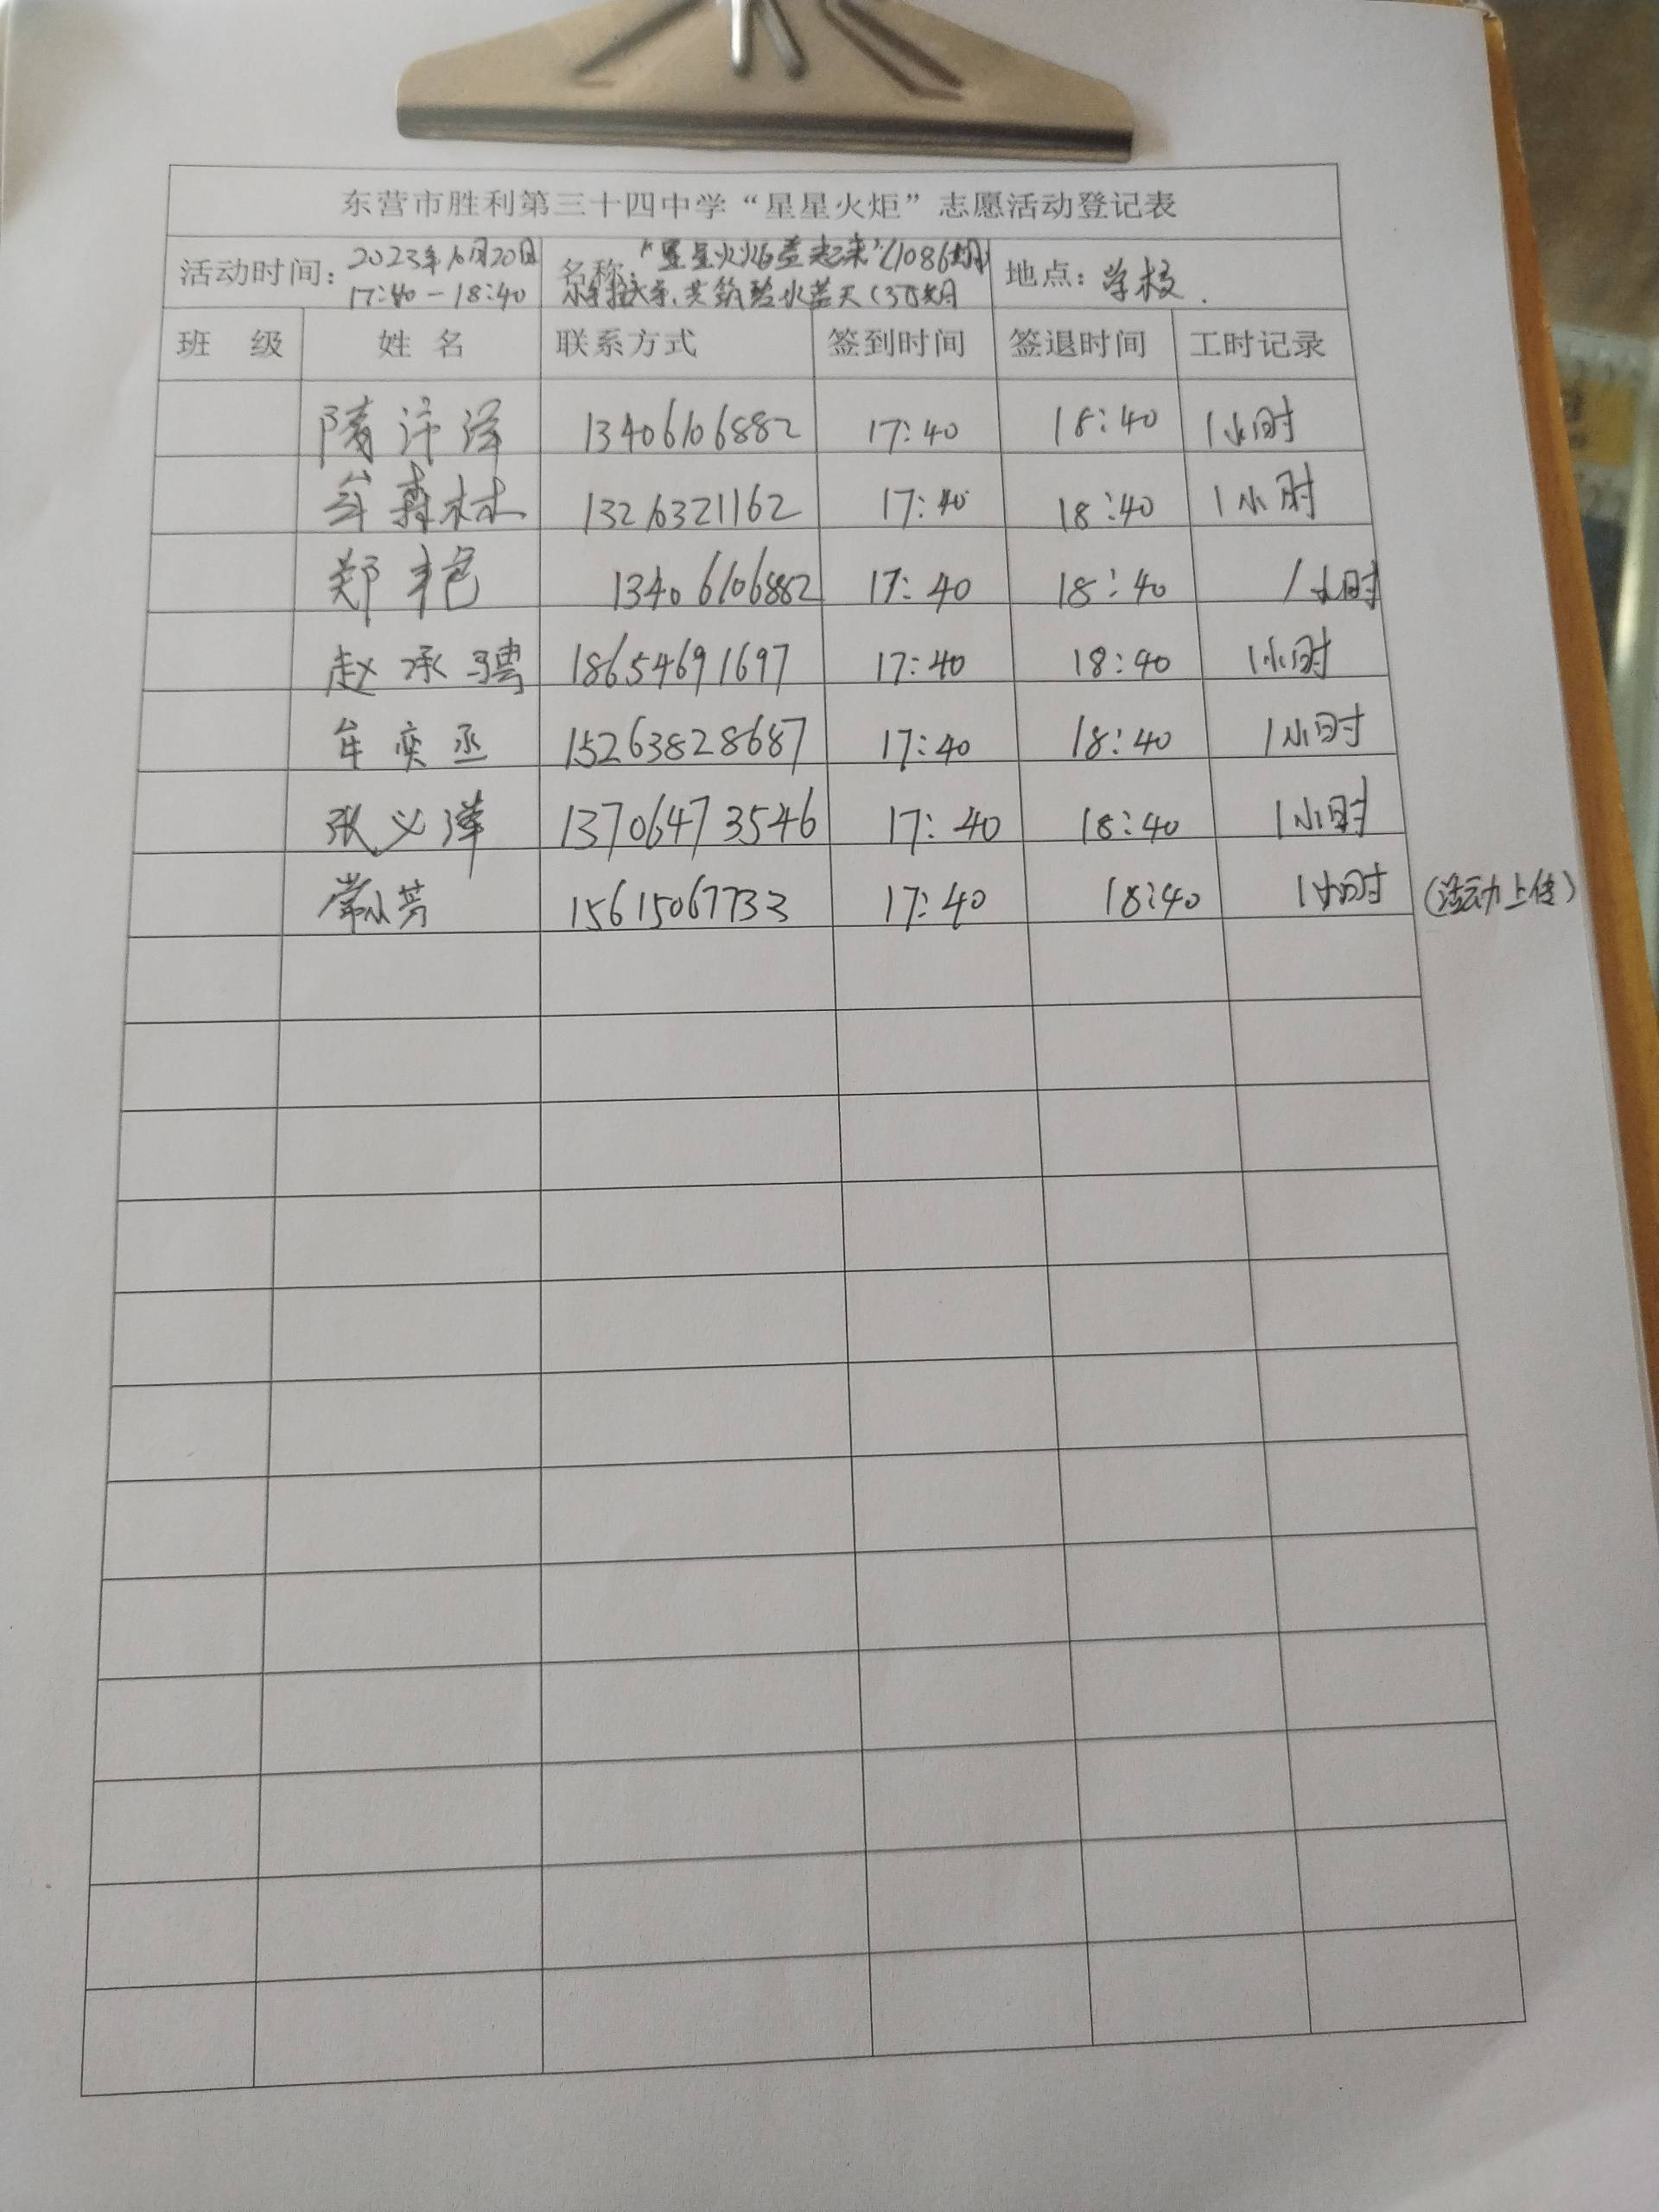 东营市胜利第三十四中学“星星火炬”志愿活动登记表
活动时间：2023年10月20日 17:40-18:40 名称：“星星火炬 起来”(1086期) 小手拉大手,共筑碧水蓝天(3 期) 地点：学校.
班 级 姓 名 联系方式 签到时间 签退时间 工时记录
隋 泽 13406106882 17:40 18:40 1小时
牟森林 13216321162 17:40 18:40 1小时
郑艳 13406106882 17:40 18:40 1小时
赵承骋 18654691697 17:40 18:40 1小时
牟奕丞 15263828687 17:40 18:40 1小时
张义洋 13706473546 17:40 18:40 1小时
常小芳 15615067733 17:40 18:40 1小时 (活动上传)